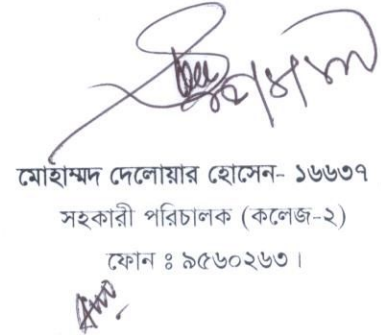 মোহাম্মদ দেলোয়ার হোসেন- ১৬৬৩৭
সহকারী পরিচালক (কলেজ-২)
ফোন ঃ ৯৫৬০২৬৩।